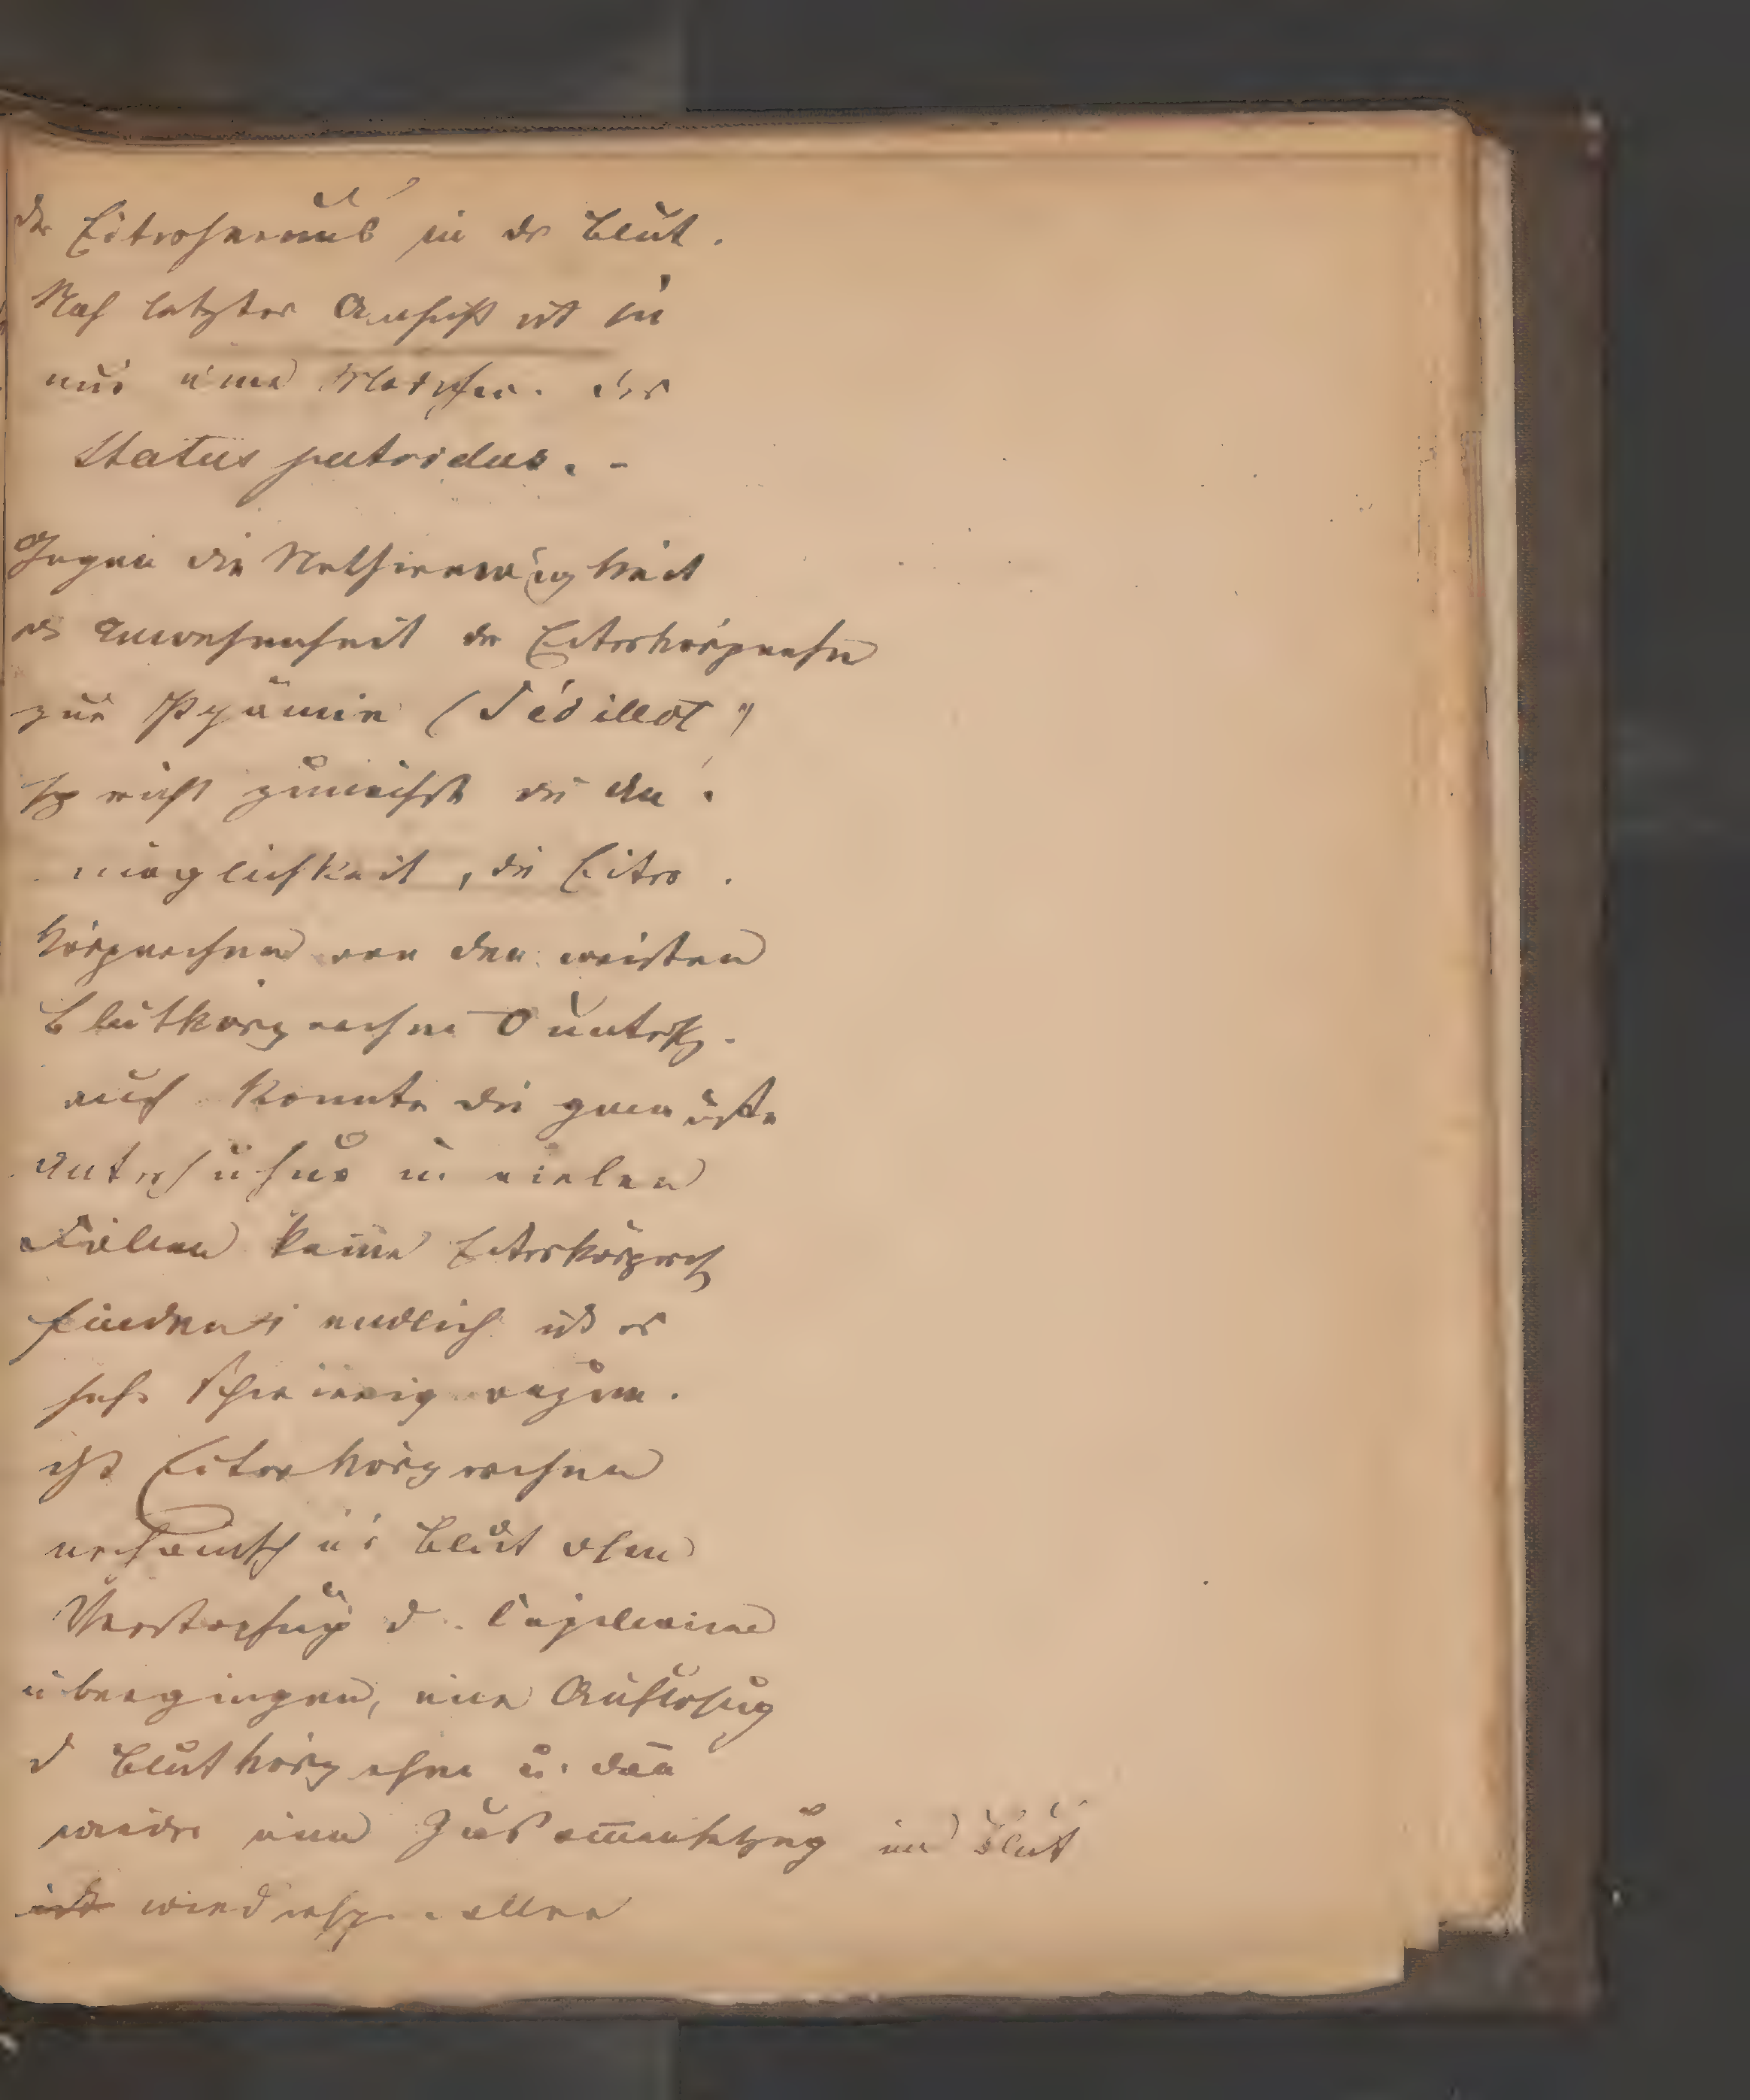 des Eiterserums in das Blut.
Nach letzter Ansicht ist sie
nur eine Modific. des
Status putridus. -
Gegen die Nothwendigkeit
der Anwesenheit der Eiterkörperchen
zur Pyämie (Sédillot)
spricht zunächst die Un-
möglichkeit, die Eiter-
körperchen von den weissen
Blutkörperchen 0 untersch.
auch konnte die genauste
Untersuchung in vielen
Fällen keine Eiterkörperch
finden; endlich ist es
sehr schwierig anzun.
dass Eiterkörperchen
mechanisch ins Blut ohne
Verstopfung d. Capillaren
übergingen, eine Auflösung
d Blutkörperchen u. dann
wieder eine Zusammensetzung im Blut
ist widerspr. allen